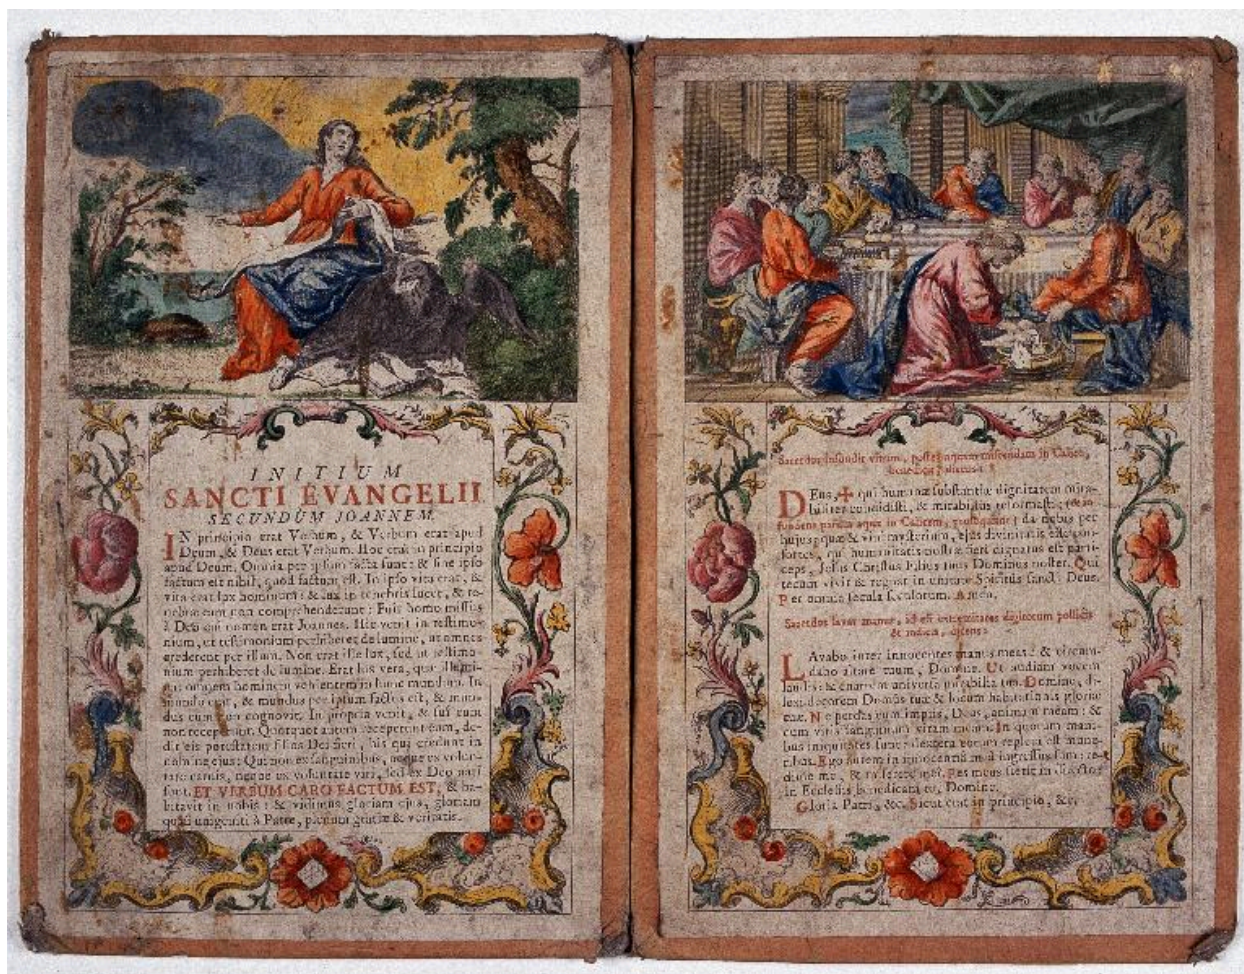 INITIUM
SANCTI EVANGELII
SECUNDUM JOANNEM.
IN principio erat Verbum, & Verbum erat apud
Deum, & Deus erat Verbum. Hoc erat in principio
apud Deum. Omnia per ipsum facta sunt: & sine ipso
factum est nihil, quod factum est. In ipso vita erat, &
vita erat lux hominum: & lux in tenebris lucet, & te-
nebræ eum non comprehenderunt: Fuit homo missus
à Deo cui nomen erat Joannes. Hic venit in testimo-
nium, ut testimonium perhiberet de lumine, ut omnes
crederent per illum. Non erat ille lux, sed ut testimo-
nium perhiberet de lumine. Erat lux vera, quæ illumi-
nat omnem hominem venientem in hunc mundum. In
mundo erat, & mundus per ipsum factus est, & mun-
dus eum non cognovit. In propria venit, & sui eum
non receperunt. Quotquot autem receperunt eum, de-
dit eis potestatem filios Dei fieri, his qui credunt in
nomine ejus: Qui non ex sanguinibus, neque ex volun-
tate carnis, neque ex voluntate viri, sed ex Deo nati
sunt. ET VERBUM CARO FACTUM EST, & ha-
bitavit in nobis: & vidimus gloriam ejus, gloriam
quasi unigeniti à Patre, plenum gratiæ & veritatis.
Sacerdos infundit vinum, postea aquam in Calice,
DEus, + qui humanæ substantiæ dignitatem mira-
biliter condidisti, & mirabilius reformasti: (& in-
fundens parum aquæ in Calicem, prosequitur) da nobis per
hujus aquæ & vini mysterium, ejus divinitatis esse con-
sortes, qui humanitatis nostræ fieri dignatus est parti-
ceps, Jesus Christus Filius tuus Dominus noster. Qui
tecum vivit & regnat in unitate Spiritus sancti Deus.
Per omnia secula seculorum. Amen.
Sacerdos lavat manus, id est extremitates digitorum pollicis
& indicis, dicens:
LAvabo inter innocentes manus meas: & circum-
dabo altare tuum, Domine. Ut audiam vocem
laudis: & enarrem universa mirabilia tua. Domine, di-
lexi decorem Domus tuæ & locum habitationis gloriæ
tuæ. Ne perdas cum impiis, Deus, animam meam: &
cum viris sanguinum vitam meam. In quorum mani-
bus iniquitates sunt: dextera eorum repleta est mune-
ribus. Ego autem in innocentia mea ingressus sum: re-
dime me, & miserere mei. Pes meus stetit in directo:
in Ecclesiis benedicam te, Domine.
Gloria Patri, &c. Sicut erat in principio, &c.